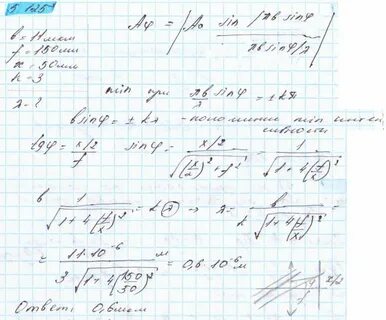 5.125
b = 11 мкм
f = 150 мм
x = 50 мм
k = 3
λ - ?
Aφ = | A₀ sin (πb sinφ/λ) / (πb sinφ/λ) |
min при πb/λ sinφ = ±kπ
b sinφ = ±kλ - положение min интен-
сивности
tgφ = (x/2)/f   sinφ = (x/2)/√((x/2)² + f²) = 1/√(1+4(f/x)²)
b 1/√(1+4(f/x)²) = kλ → λ = b/(k√(1+4(f/x)²)) =
= 11·10⁻⁶ м/(3√(1+4(150/50)²)) = 0,6·10⁻⁶ м
x/2
f
Ответ: 0,6 мкм